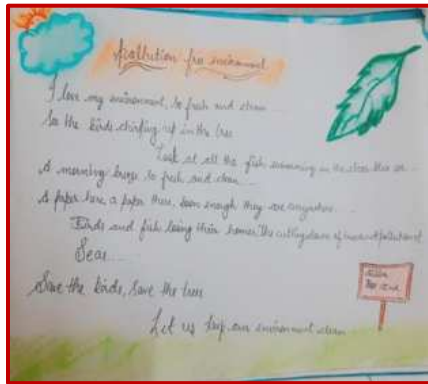 A pollution free environment
I love my environment, so fresh and clean
See the birds chirping up in the tree
Look at all the fish swimming in the clear blue sea...
A morning breeze so fresh and clean....
A paper here, a paper there, soon enough they are everywhere....
Birds and fish losing their homes, the cutting down of trees and pollution of
Seas....
Save the birds, Save the trees
Let us keep our environment clean